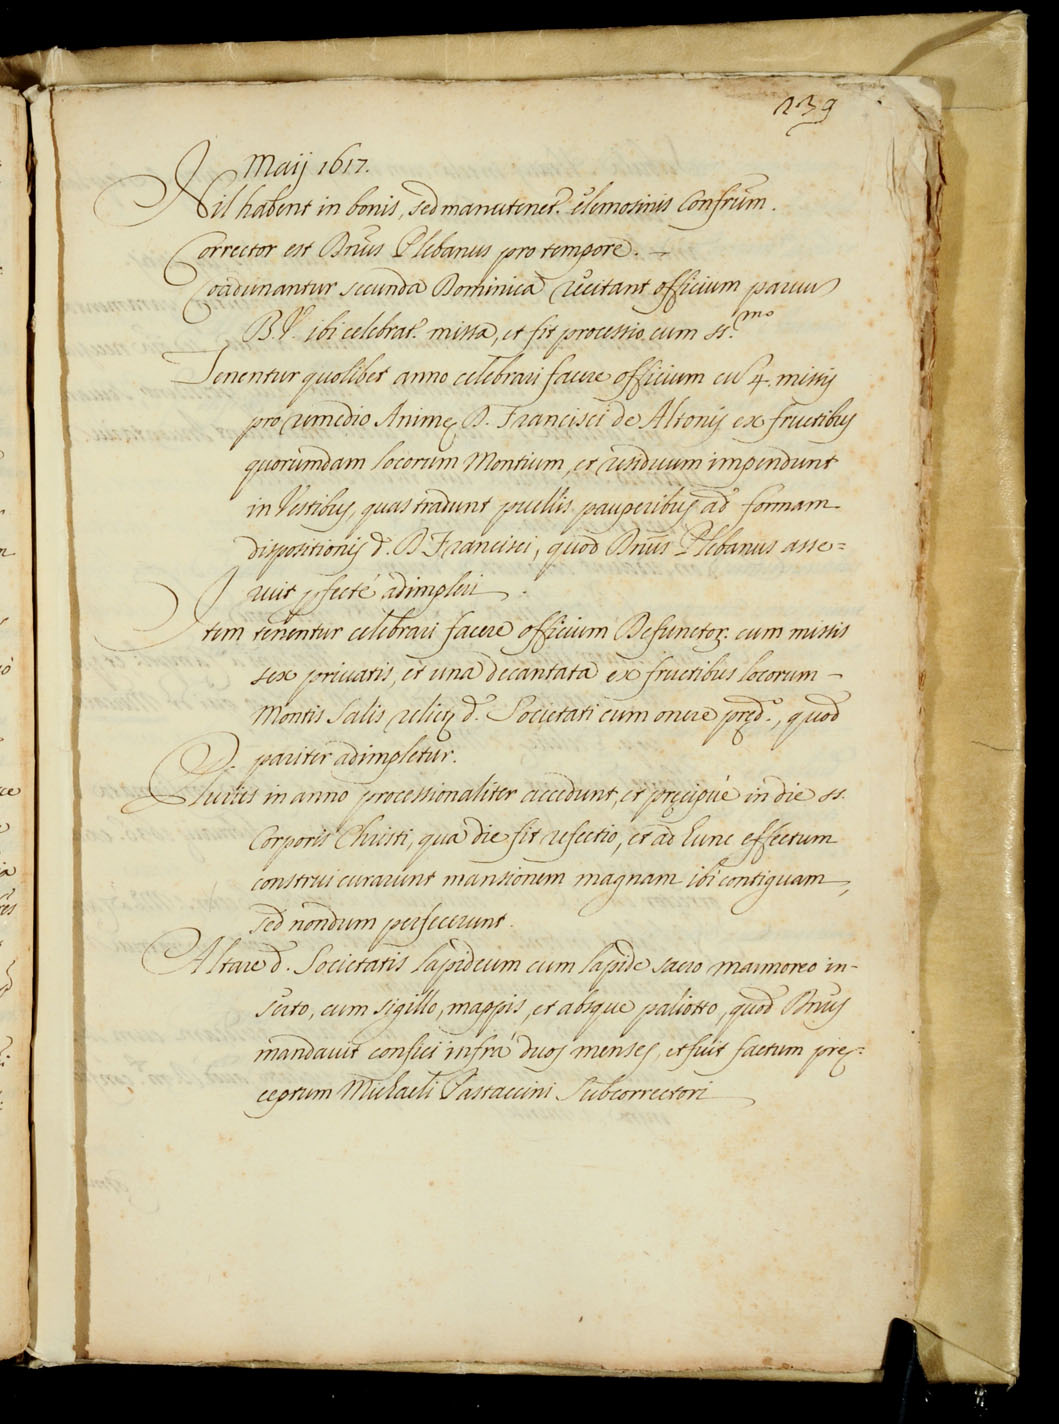 239
Maij 1617.
Nil habent in bonis, sed manutenet.r elemosinis Confrũm.
Corrector est Dnũs Plebanus pro tempore.
Coadunantur secunda Dominica recitant officium paruũ
B. V. ibi celebrat.r missa, et fit processio cum ss.mo
Tenentur quolibet anno celebrari facere officium cũ 4. missis
pro remedio Animę D. Francisci de Altonijs ex fructibus
quorumdam locorum Montium, et residuum impendunt
in Vestibus, quas tradunt puellis pauperibus ad formam
dispositionis d. D Francisci, quod Dnũs Plebanus asse=
ruit pfecté adimpleri.
Item tenentur celebrari facere officium Defunctoꝝ. cum missis
sex priuatis, et una decantata ex fructibus locorum
Montis Salis relictꝫ d. Societati cum onere pręd.o, quod
pariter adimpletur.
Pluries in anno processionaliter accedunt, et pręcipué in die ss.
Corporis Christi, qua die fit refectio, et ad hunc effectum
construi curarunt mansionem magnam ibi contiguam,
sed nondum perfecerunt.
Altare d. Societatis lapideum cum lapide sacro marmoreo in-
serto, cum sigillo, mappis, et absque paliotto, quod Dnũs
mandauit confici infrà duos menses, et fuit factum prę=
ceptum Michaeli Pastaccini Subcorrectori